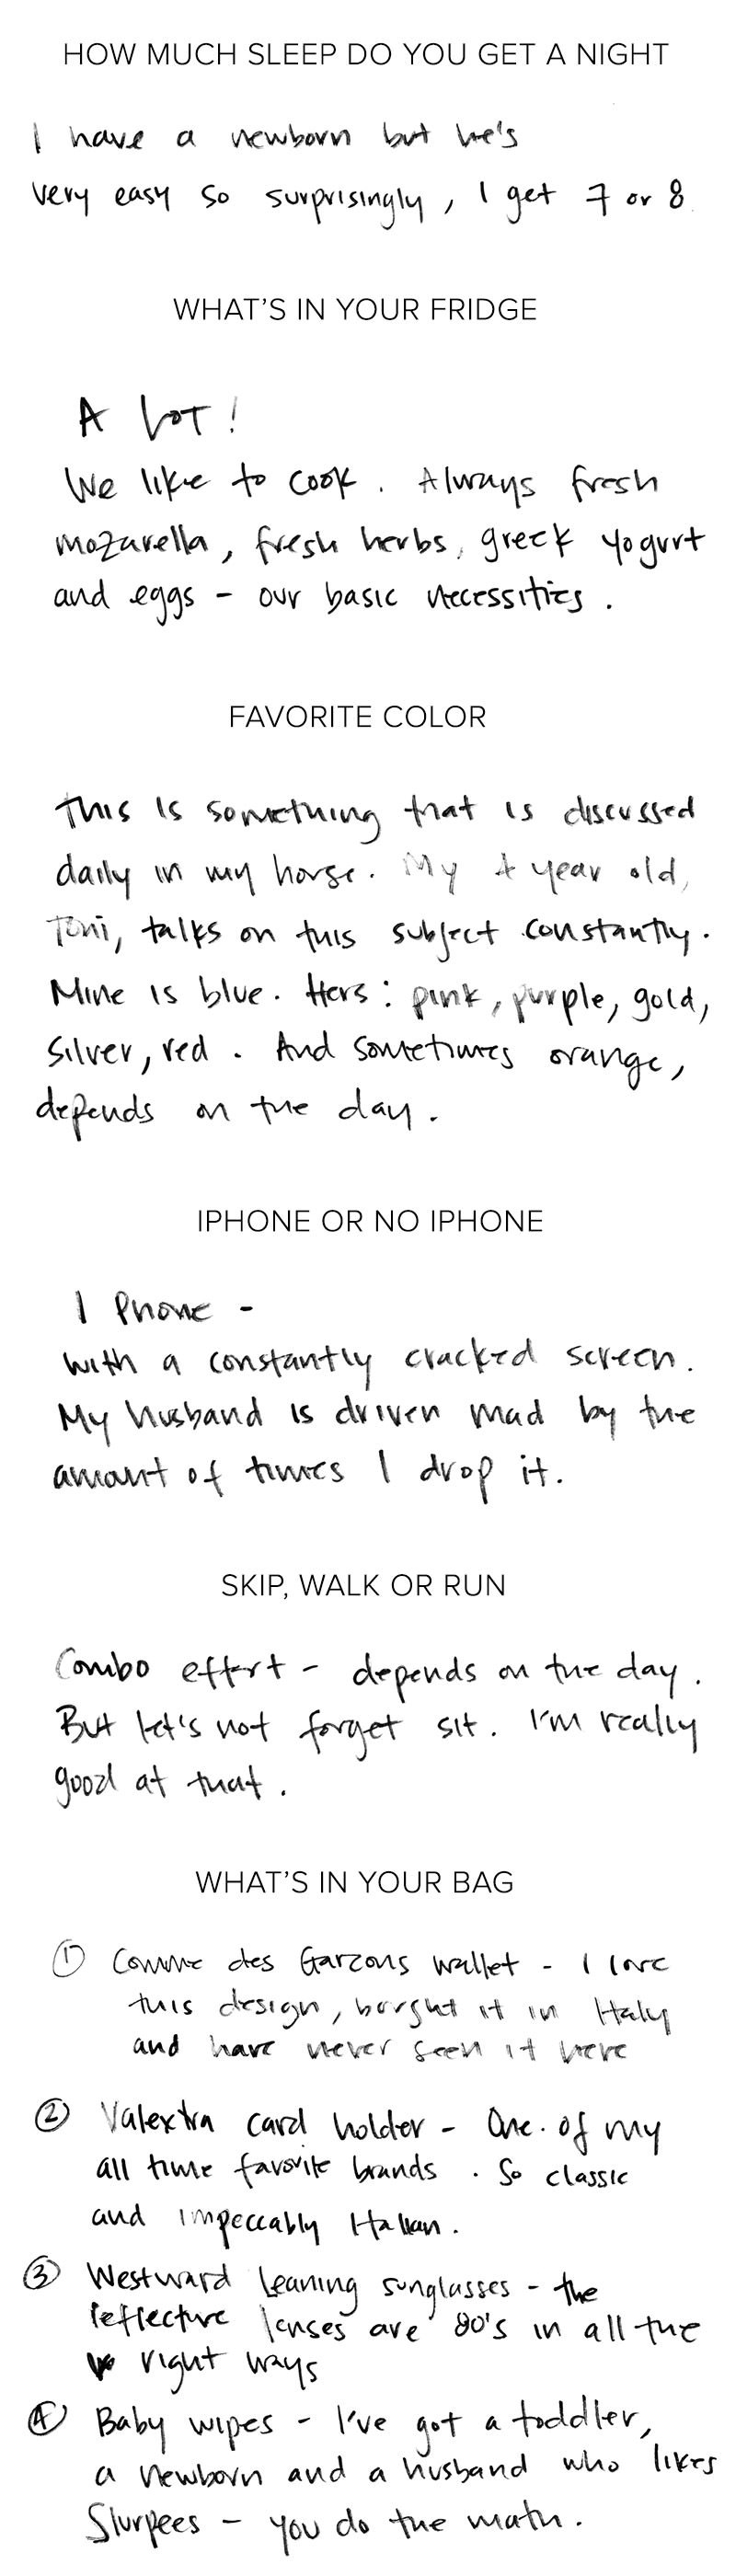 HOW MUCH SLEEP DO YOU GET A NIGHT
I have a newborn but he's
very easy so surprisingly, I get 7 or 8
WHAT'S IN YOUR FRIDGE
A LOT!
We like to cook. Always fresh
mozarella, fresh herbs, greek yogurt
and eggs - our basic necessities.
FAVORITE COLOR
This is something that is discussed
daily in my house. My 4 year old,
Toni, talks on this subject constantly.
Mine is blue. Hers: pink, purple, gold,
silver, red. And sometimes orange,
depends on the day.
IPHONE OR NO IPHONE
I Phone -
with a constantly cracked screen.
My husband is driven mad by the
amount of times I drop it.
SKIP, WALK OR RUN
Combo effort - depends on the day.
But let's not forget sit. I'm really
good at that.
WHAT'S IN YOUR BAG
① Comme des Garcons wallet - I love
this design, bought it in Italy
and have never seen it here
② Valextra card holder - One of my
all time favorite brands. So classic
and impeccably Italian.
③ Westward Leaning sunglasses - the
reflective lenses are 80's in all the
right ways
④ Baby wipes - I've got a toddler,
a newborn and a husband who likes
Slurpees - you do the math.